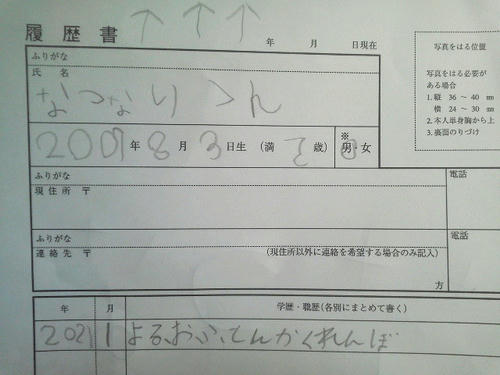 履歴書 ↑ ↑ ↑
年 月 日現在
ふりがな
氏 名
なつなり
2009年 8月 3日生 (満 歳) ※ 男・女
写真をはる位置
写真をはる必要が
ある場合
1. 縦 36 ～ 40 ㎜
横 24 ～ 30 ㎜
2. 本人単身胸から上
3. 裏面のりづけ
ふりがな
電話
現住所 〒
ふりがな
電話
連絡先 〒 (現住所以外に連絡を希望する場合のみ記入)
方
年 月 学歴・職歴(各別にまとめて書く)
2021 1 よる、おふとんかくれんぼ